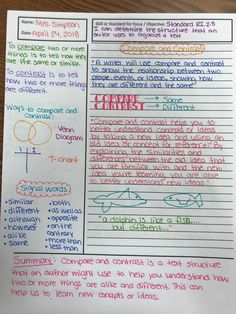 Name: Mrs. Simpson
Date: April 24, 2018
Skill or Standard for focus / Objective: Standard RI.2.5
I can determine the structure that an
author uses to organize a text
To compare two or more
things is to tell how they
are the same or similar.
To contrast is to tell
how two or more
things are different.
Ways to compare and
contrast:
Venn
Diagram
T-chart
Signal words
• similar
• different
• although
• however
• alike
• same
• both
• as well as
• opposite
• on the
contrary
• more than
• less than
Compare and Contrast
• A writer will use compare and contrast
to show the relationship between two
people, events, or ideas, showing how
they are different and the same"
COMPARE → Same
CONTRAST → Different
• Compare and contrast helps you to
better understand concepts or ideas
by taking a new idea and using an
old idea or concept for reference. By
explaining the similarities and
differences between the old idea that
you are familiar with and the new
idea you're learning, you are able
to better understand new ideas"
"a dolphin is like a fish....
but different..."
Summary: Compare and contrast is a text structure
that an author might use to help you understand how
two or more things are alike and different. This can
help us to learn new concepts or ideas.